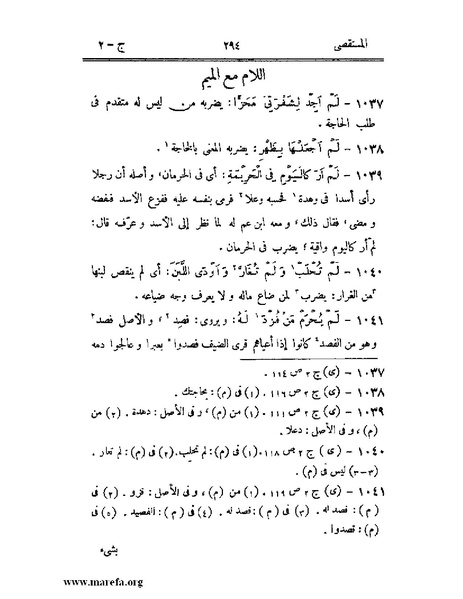 المستقصى ٢٩٤ ج - ٢
اللام مع الميم
١٠٣٧ - لَمْ اَجِدْ لِشَفْرَتِيْ مَحَزًّا: يضربه من ليس له متقدم فى
طلب الحاجة .
١٠٣٨ - لَمْ اَجْعَلْهَا بِظَهْرٍ: يضربه المعنى بالحاجة ١.
١٠٣٩ - لَمْ اَرَ كَالْيَوْمِ فِى الْحَرِيْمَةِ: أى فى الحرمان، و أصله أن رجلا
رأى أسدا فى وهدة ١ فحسبه وعلا ٢ فرمى بنفسه عليه ففزع الأسد فنفضه
و مضى، فقال ذلك، و معه ابن عم له لما نظر إلى الأسد و عرفه قال:
لم أر كاليوم واقية؛ يضرب فى الحرمان .
١٠٤٠ - لَمْ تُحْلَبْ ١ وَ لَمْ تُغَارَّ ٢ وَ اَوْدَى اللَّبَنُ: أى لم ينقص لبنها
٣ من الغرار: يضرب ٣ لمن ضاع ماله و لا يعرف وجه ضياعه .
١٠٤١ - لَمْ يُحْرَمْ مَنْ فُزْدَ ١ لَهُ: و يروى: فصد ٢، و الأصل فصد ٣
و هو من الفصد ٤ كانوا إذا أعياهم قرى الضيف فصدوا ٥ بعيرا و عالجوا دمه
١٠٣٧ - (ى) ج ٢ ص ١١٤ .
١٠٣٨ - (ى) ج ٢ ص ١١٦ . (١) فى (م): بحاجتك .
١٠٣٩ - (ى) ج ٢ ص ١١١ . (١) من (م)، و فى الأصل: دهدة . (٢) من
(م)، و فى الأصل: دعلا .
١٠٤٠ - (ى) ج ٢ ص ١١٨ . (١) فى (م): لم تحلب . (٢) فى (م): لم تعار .
(٣-٣) ليس فى (م) .
١٠٤١ - (ى) ج ٢ ص ١١٩ . (١) من (م)، و فى الأصل: فزو . (٢) فى
(م): فصد له . (٣) فى (م): فصد له . (٤) فى (م): الفصيد . (٥) فى
(م): قصدوا .
بشىء
www.marefa.org